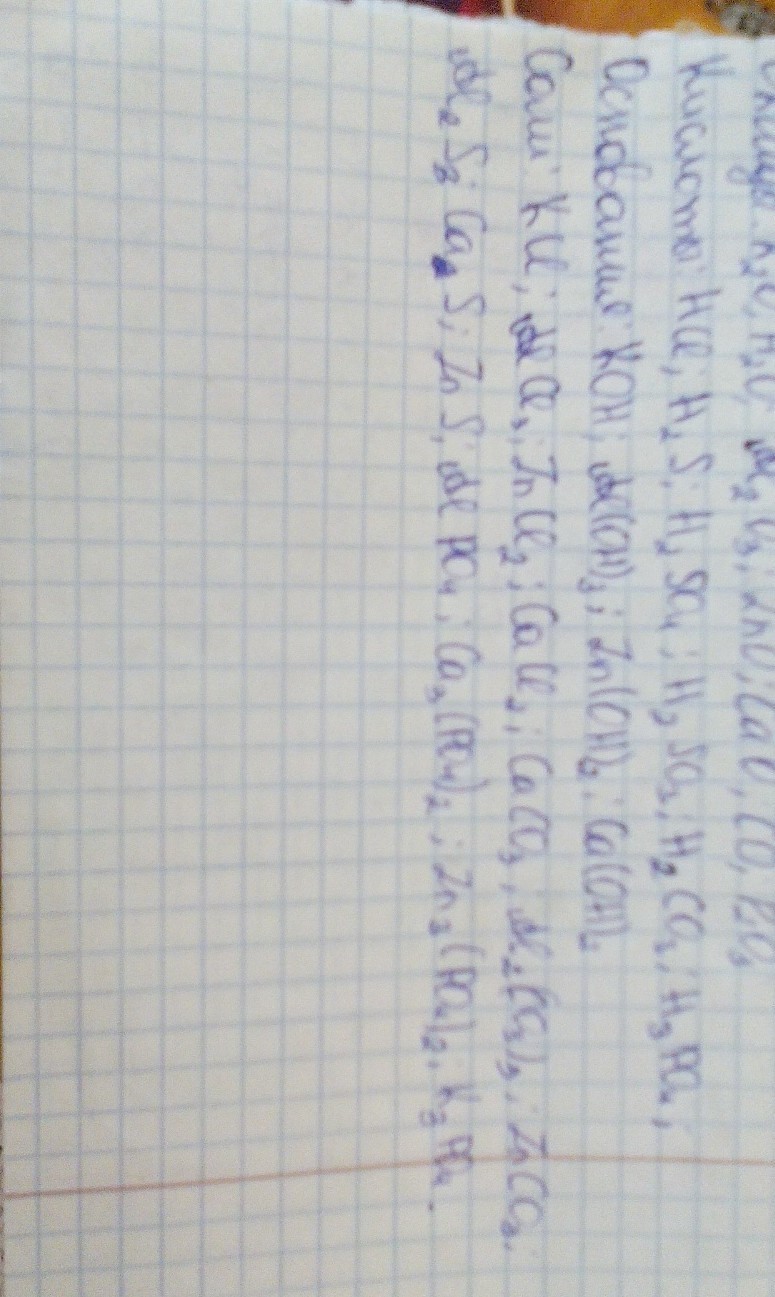 K₂O; H₂O; Al₂O₃; ZnO; CaO; CO;
Кислоты: HCl; H₂S; H₂SO₄; H₂SO₃; H₂CO₃; H₃PO₄;
Основание: KOH; Al(OH)₃; Zn(OH)₂; Ca(OH)₂
Соли: KCl; AlCl₃; ZnCl₂; CaCl₂; CaCO₃; Al₂(CO₃)₃; ZnCO₃;
Al₂S₃; CaS; ZnS; AlPO₄; Ca₃(PO₄)₂; Zn₃(PO₄)₂; K₃PO₄.